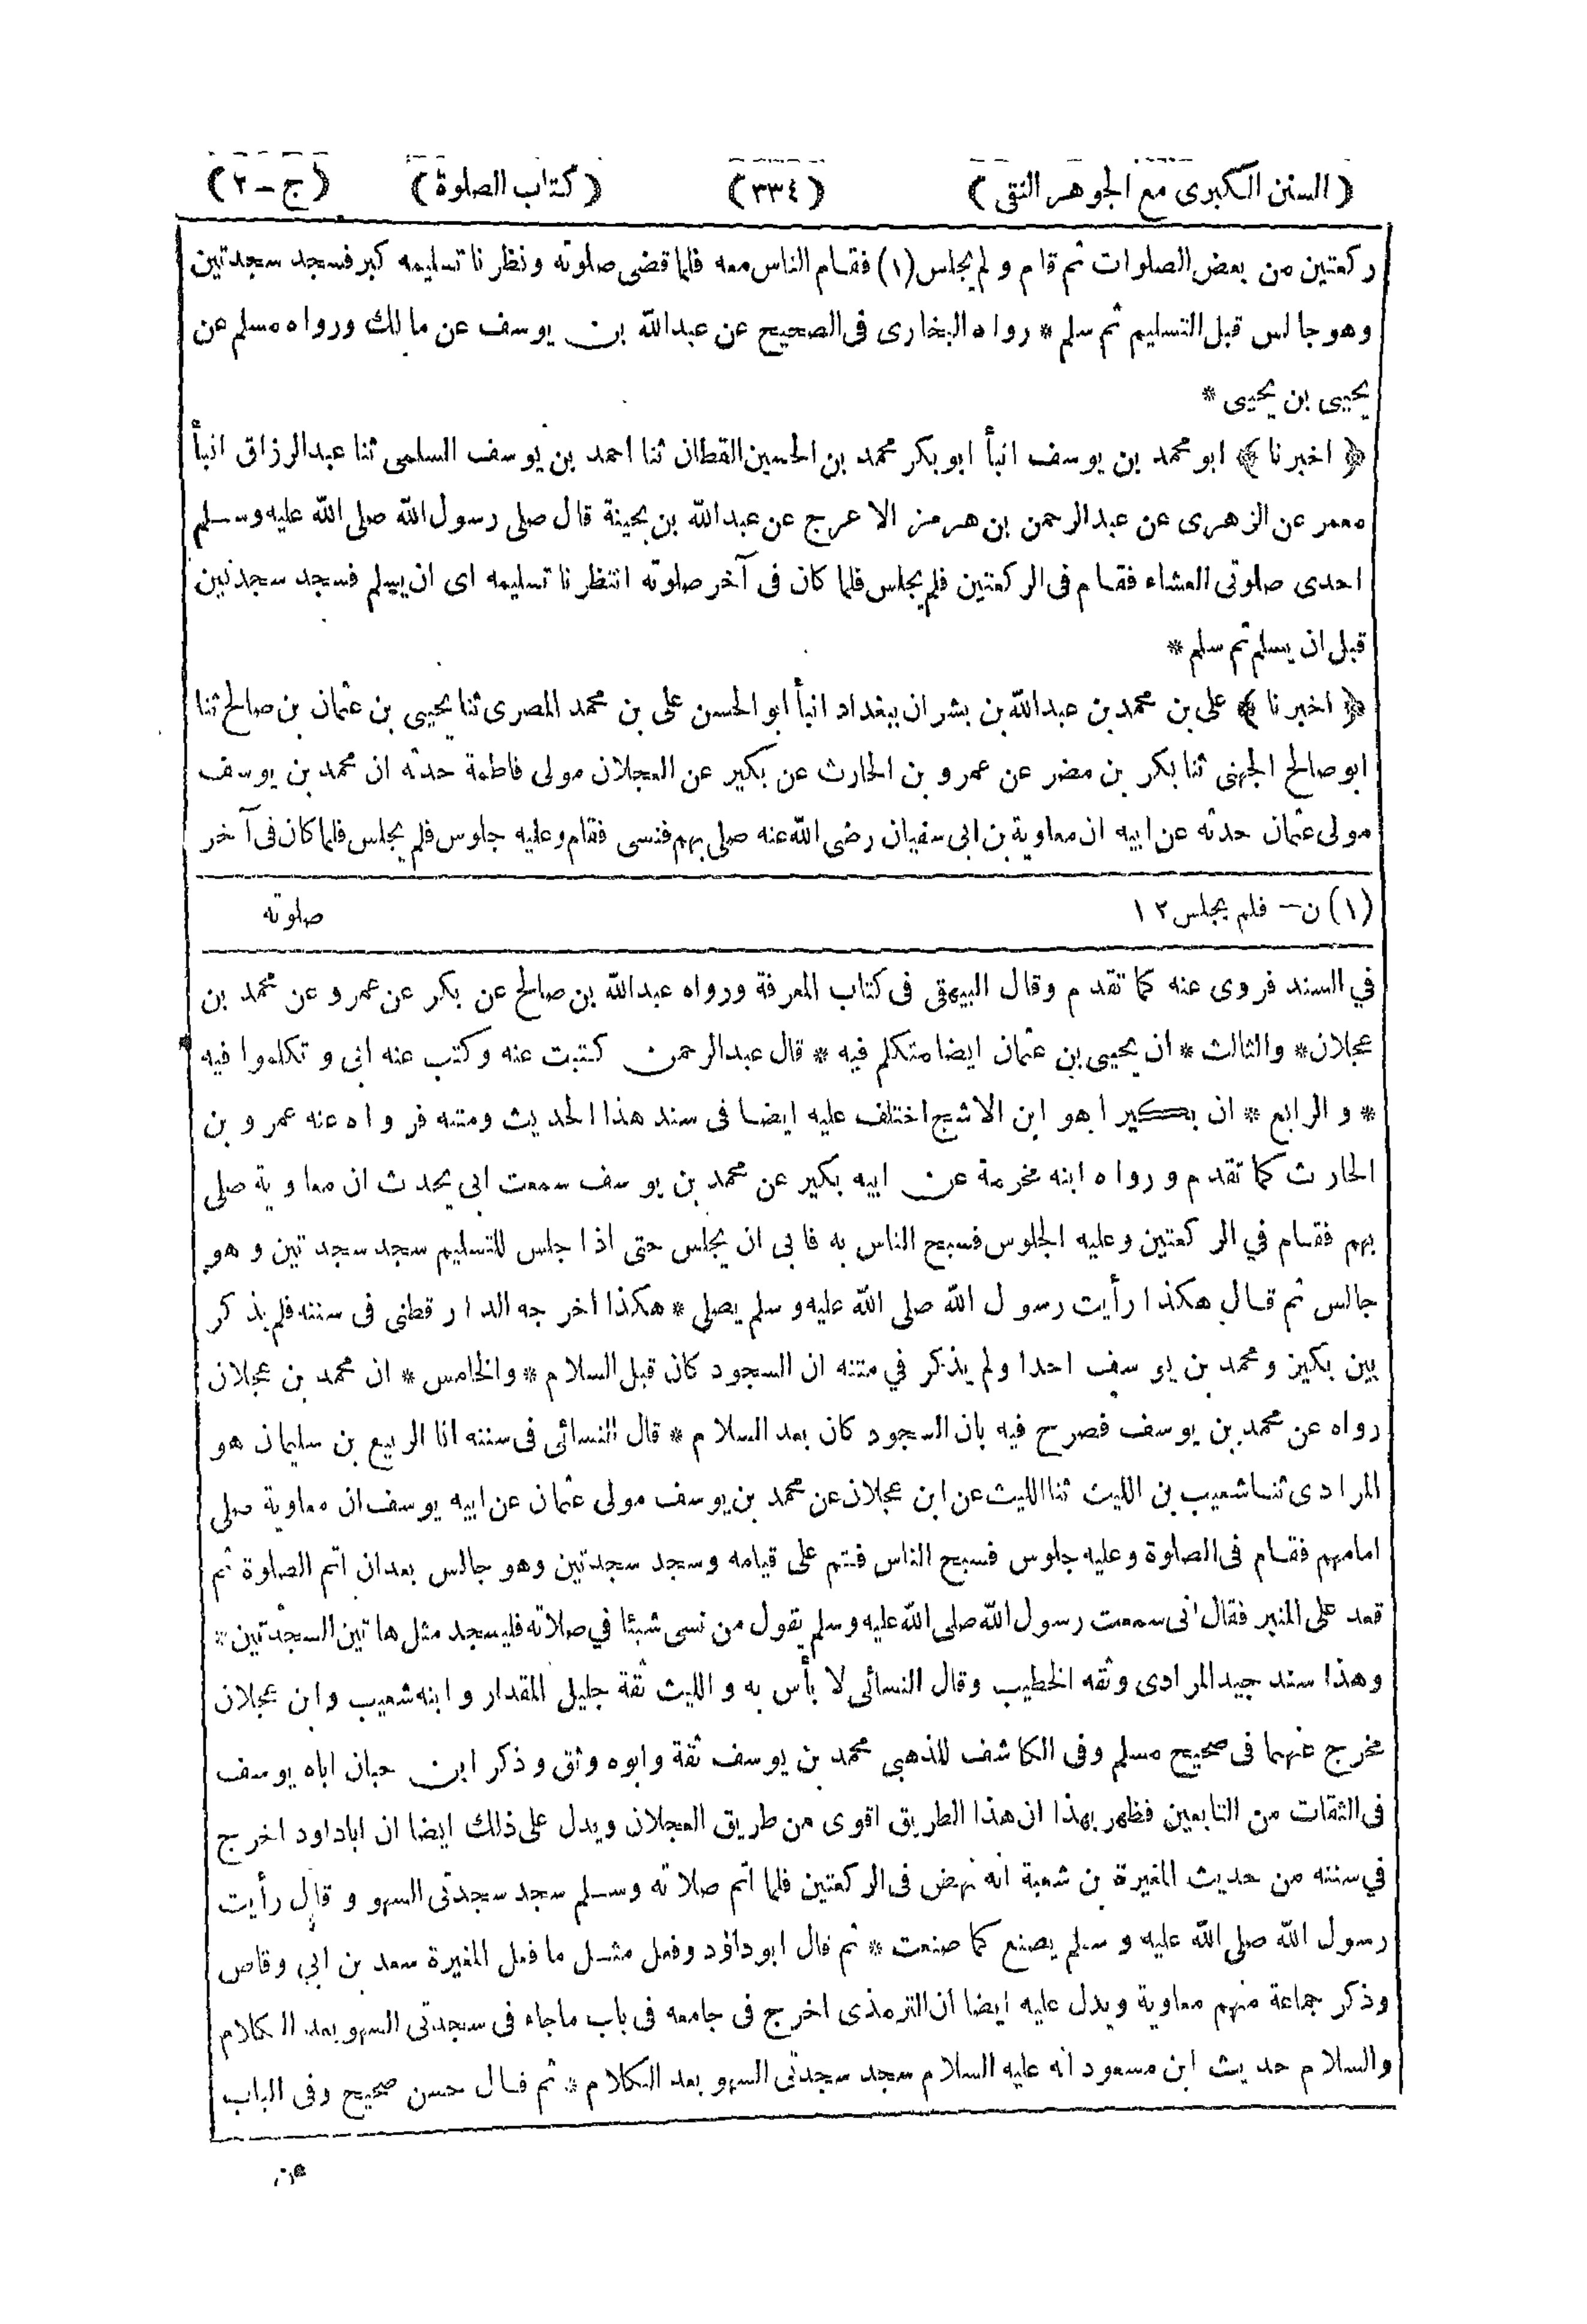 (السنن الكبرى مع الجوهر النقى) (٣٣٤) (كتاب الصلوة) (ج-٢)
ركعتين من بعض الصلوات ثم قام ولم يجلس (١) فقام الناس معه فلما قضى صلوته ونظرنا تسليمه كبر فسجد سجدتين
وهو جالس قبل التسليم ثم سلم * رواه البخارى فى الصحيح عن عبدالله بن يوسف عن مالك ورواه مسلم عن
يحيى بن يحيى *
﴿ اخبرنا ﴾ ابو محمد بن يوسف انبأ ابو بكر محمد بن الحسين القطان ثنا احمد بن يوسف السلمى ثنا عبدالرزاق انبأ
معمر عن الزهرى عن عبد الرحمن بن هرمز الاعرج عن عبدالله بن بحينة قال صلى رسول الله صلى الله عليه وسلم
احدى صلوتى العشاء فقام فى الركعتين فلم يجلس فلما كان فى آخر صلوته انتظرنا تسليمه اى ان يسلم فسجد سجدتين
قبل ان يسلم ثم سلم *
﴿ اخبرنا ﴾ على بن محمد بن عبدالله بن بشران ببغداد انبأ ابو الحسن على بن محمد المصرى ثنا يحيى بن عثمان بن صالح ثنا
ابو صالح الجهنى ثنا بكر بن مضر عن عمرو بن الحارث عن بكير عن العجلان مولى فاطمة حدثه ان محمد بن يوسف
مولى عثمان حدثه عن ابيه ان معاوية بن ابى سفيان رضى الله عنه صلى بهم فنسى فقام وعليه جلوس فلم يجلس فلما كان فى آخر
(١) ن- فلم يجلس ١٢ صلوته
في السند فروى عنه كما تقدم وقال البيهقى فى كتاب المعرفة ورواه عبدالله بن صالح عن بكر عن عمرو عن محمد بن
عجلان* والثالث * ان يحيى بن عثمان ايضا متكلم فيه * قال عبدالرحمن كتبت عنه وكتب عنه ابى وتكلموا فيه
* والرابع * ان بكيرا هو ابن الاشج اختلف عليه ايضا فى سند هذا الحديث ومتنه فرواه عنه عمرو بن
الحارث كما تقدم ورواه ابنه مخرمة عن ابيه بكير عن محمد بن يوسف سمعت ابي يحدث ان معاوية صلى
بهم فقام في الركعتين وعليه الجلوس فسبح الناس به فابى ان يجلس حتى اذا جلس للتسليم سجد سجدتين وهو
جالس ثم قال هكذا رأيت رسول الله صلى الله عليه وسلم يصلى * هكذا اخرجه الدارقطنى فى سننه فلم يذكر
بين بكير ومحمد بن يوسف احدا ولم يذكر في متنه ان السجود كان قبل السلام * والخامس * ان محمد بن عجلان
رواه عن محمد بن يوسف فصرح فيه بان السجود كان بعد السلام * قال النسائى فى سننه انا الربيع بن سليمان هو
المرادى ثنا شعيب بن الليث ثنا الليث عن ابن عجلان عن محمد بن يوسف مولى عثمان عن ابيه يوسف ان معاوية صلى
امامهم فقام فى الصلوة وعليه جلوس فسبح الناس فتم على قيامه وسجد سجدتين وهو جالس بعد ان اتم الصلوة ثم
قعد على المنبر فقال انى سمعت رسول الله صلى الله عليه وسلم يقول من نسى شيئا في صلاته فليسجد مثل هاتين السجدتين *
وهذا سند جيد المرادى وثقه الخطيب وقال النسائى لا بأس به والليث ثقة جليل المقدار وابنه شعيب وابن عجلان
مخرج عنهما فى صحيح مسلم وفى الكاشف للذهبى محمد بن يوسف ثقة وابوه وثق وذكر ابن حبان اباه يوسف
فى الثقات من التابعين فظهر بهذا ان هذا الطريق اقوى من طريق العجلان ويدل على ذلك ايضا ان اباداود اخرج
في سننه من حديث المغيرة بن شعبة انه نهض فى الركعتين فلما اتم صلاته وسلم سجد سجدتى السهو وقال رأيت
رسول الله صلى الله عليه وسلم يصنع كما صنعت * ثم قال ابو داؤد وفعل مثل ما فعل المغيرة سعد بن ابي وقاص
وذكر جماعة منهم معاوية ويدل عليه ايضا ان الترمذى اخرج فى جامعه فى باب ماجاء فى سجدتى السهو بعد الكلام
والسلام حديث ابن مسعود انه عليه السلام سجد سجدتى السهو بعد الكلام * ثم قال حسن صحيح وفى الباب
عن